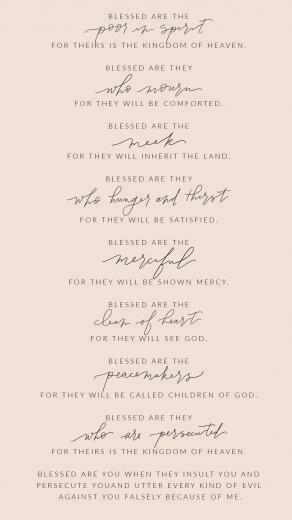 BLESSED ARE THE
poor in spirit
FOR THEIRS IS THE KINGDOM OF HEAVEN.
BLESSED ARE THEY
who mourn
FOR THEY WILL BE COMFORTED.
BLESSED ARE THE
meek
FOR THEY WILL INHERIT THE LAND.
BLESSED ARE THEY
who hunger and thirst
FOR THEY WILL BE SATISFIED.
BLESSED ARE THE
merciful
FOR THEY WILL BE SHOWN MERCY.
BLESSED ARE THE
clean of heart
FOR THEY WILL SEE GOD.
BLESSED ARE THE
peacemakers
FOR THEY WILL BE CALLED CHILDREN OF GOD.
BLESSED ARE THEY
who are persecuted
FOR THEIRS IS THE KINGDOM OF HEAVEN.
BLESSED ARE YOU WHEN THEY INSULT YOU AND
PERSECUTE YOUAND UTTER EVERY KIND OF EVIL
AGAINST YOU FALSELY BECAUSE OF ME.